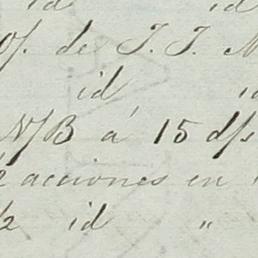 id id
of. de J. J.
id id
N/B á 15 d/s
acciones en
id "